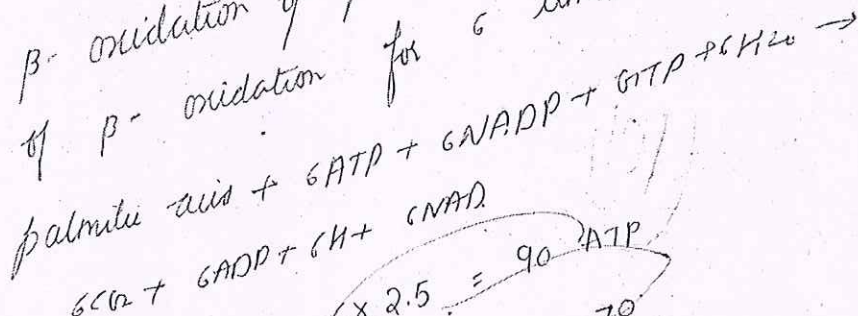 β- oxidation of
of β- oxidation for 6
palmitic acid + 6ATP + 6NADP + GTP + 6H2O →
6CO2 + 6ADP + 6H + 6NAD
× 2.5 = 90 ATP
70